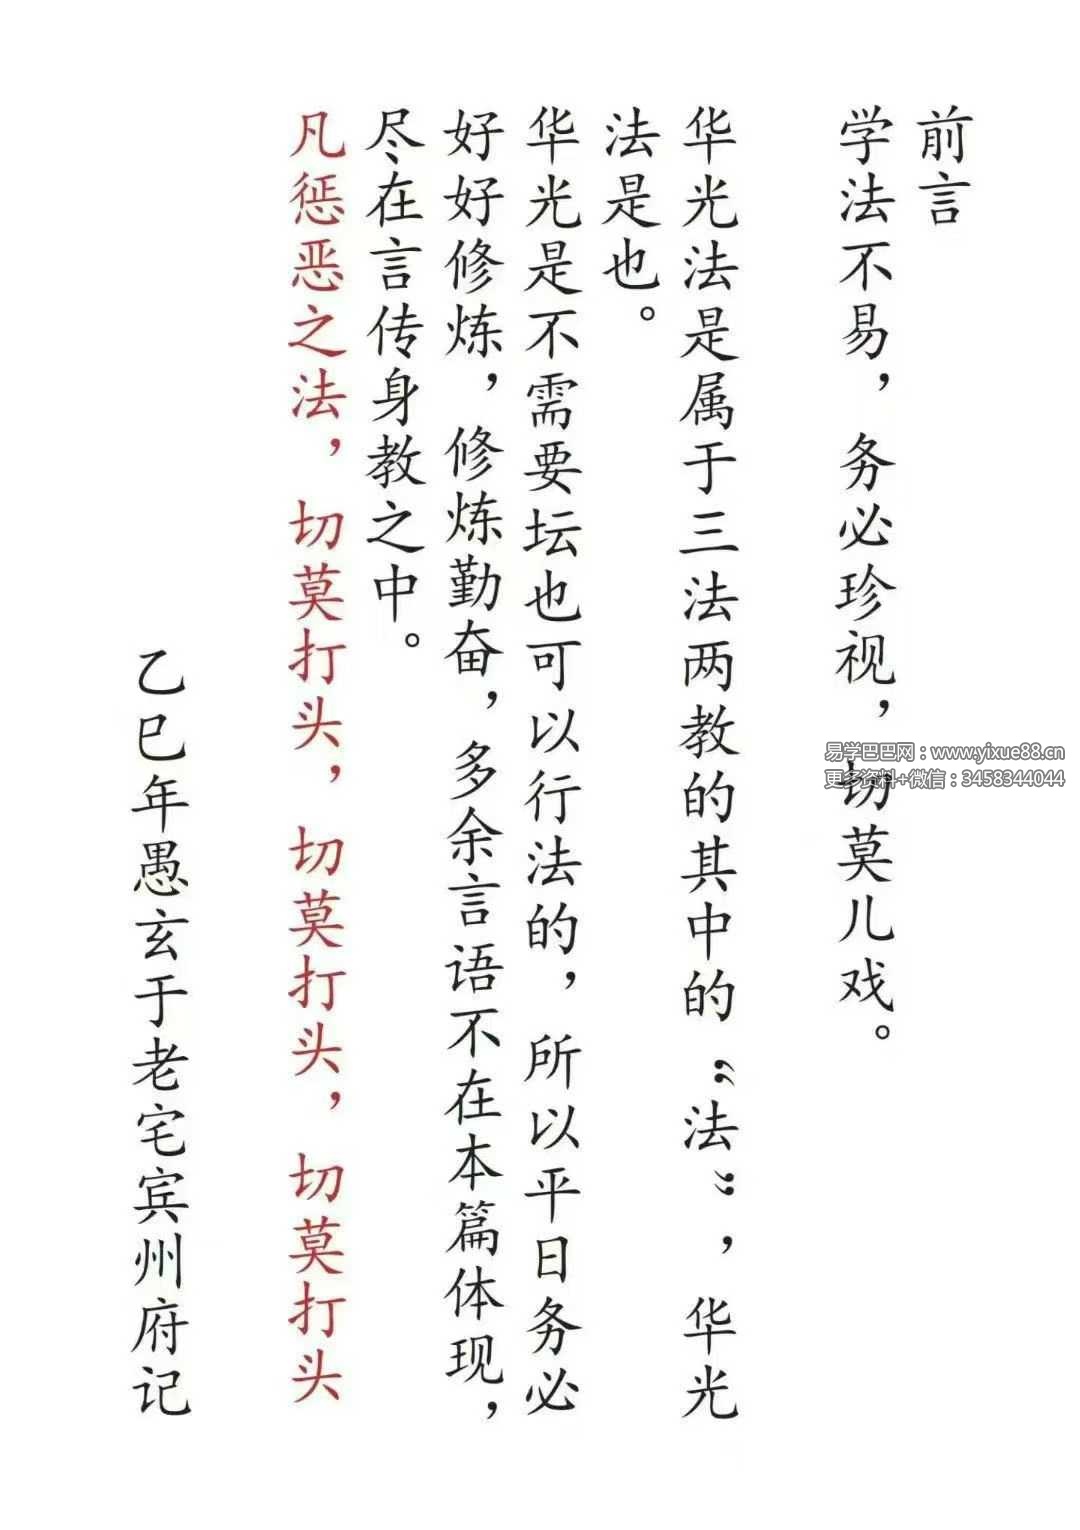 前言
学法不易，务必珍视，切莫儿戏。
华光法是属于三法两教的其中的“法”，华光
法是也。
华光是不需要坛也可以行法的，所以平日务必
好好修炼，修炼勤奋，多余言语不在本篇体现，
尽在言传身教之中。
凡惩恶之法，切莫打头，切莫打头，切莫打头
乙巳年愚玄于老宅宾州府记
易学巴巴网：www.yixue88.cn
更多资料+微信：3458344044